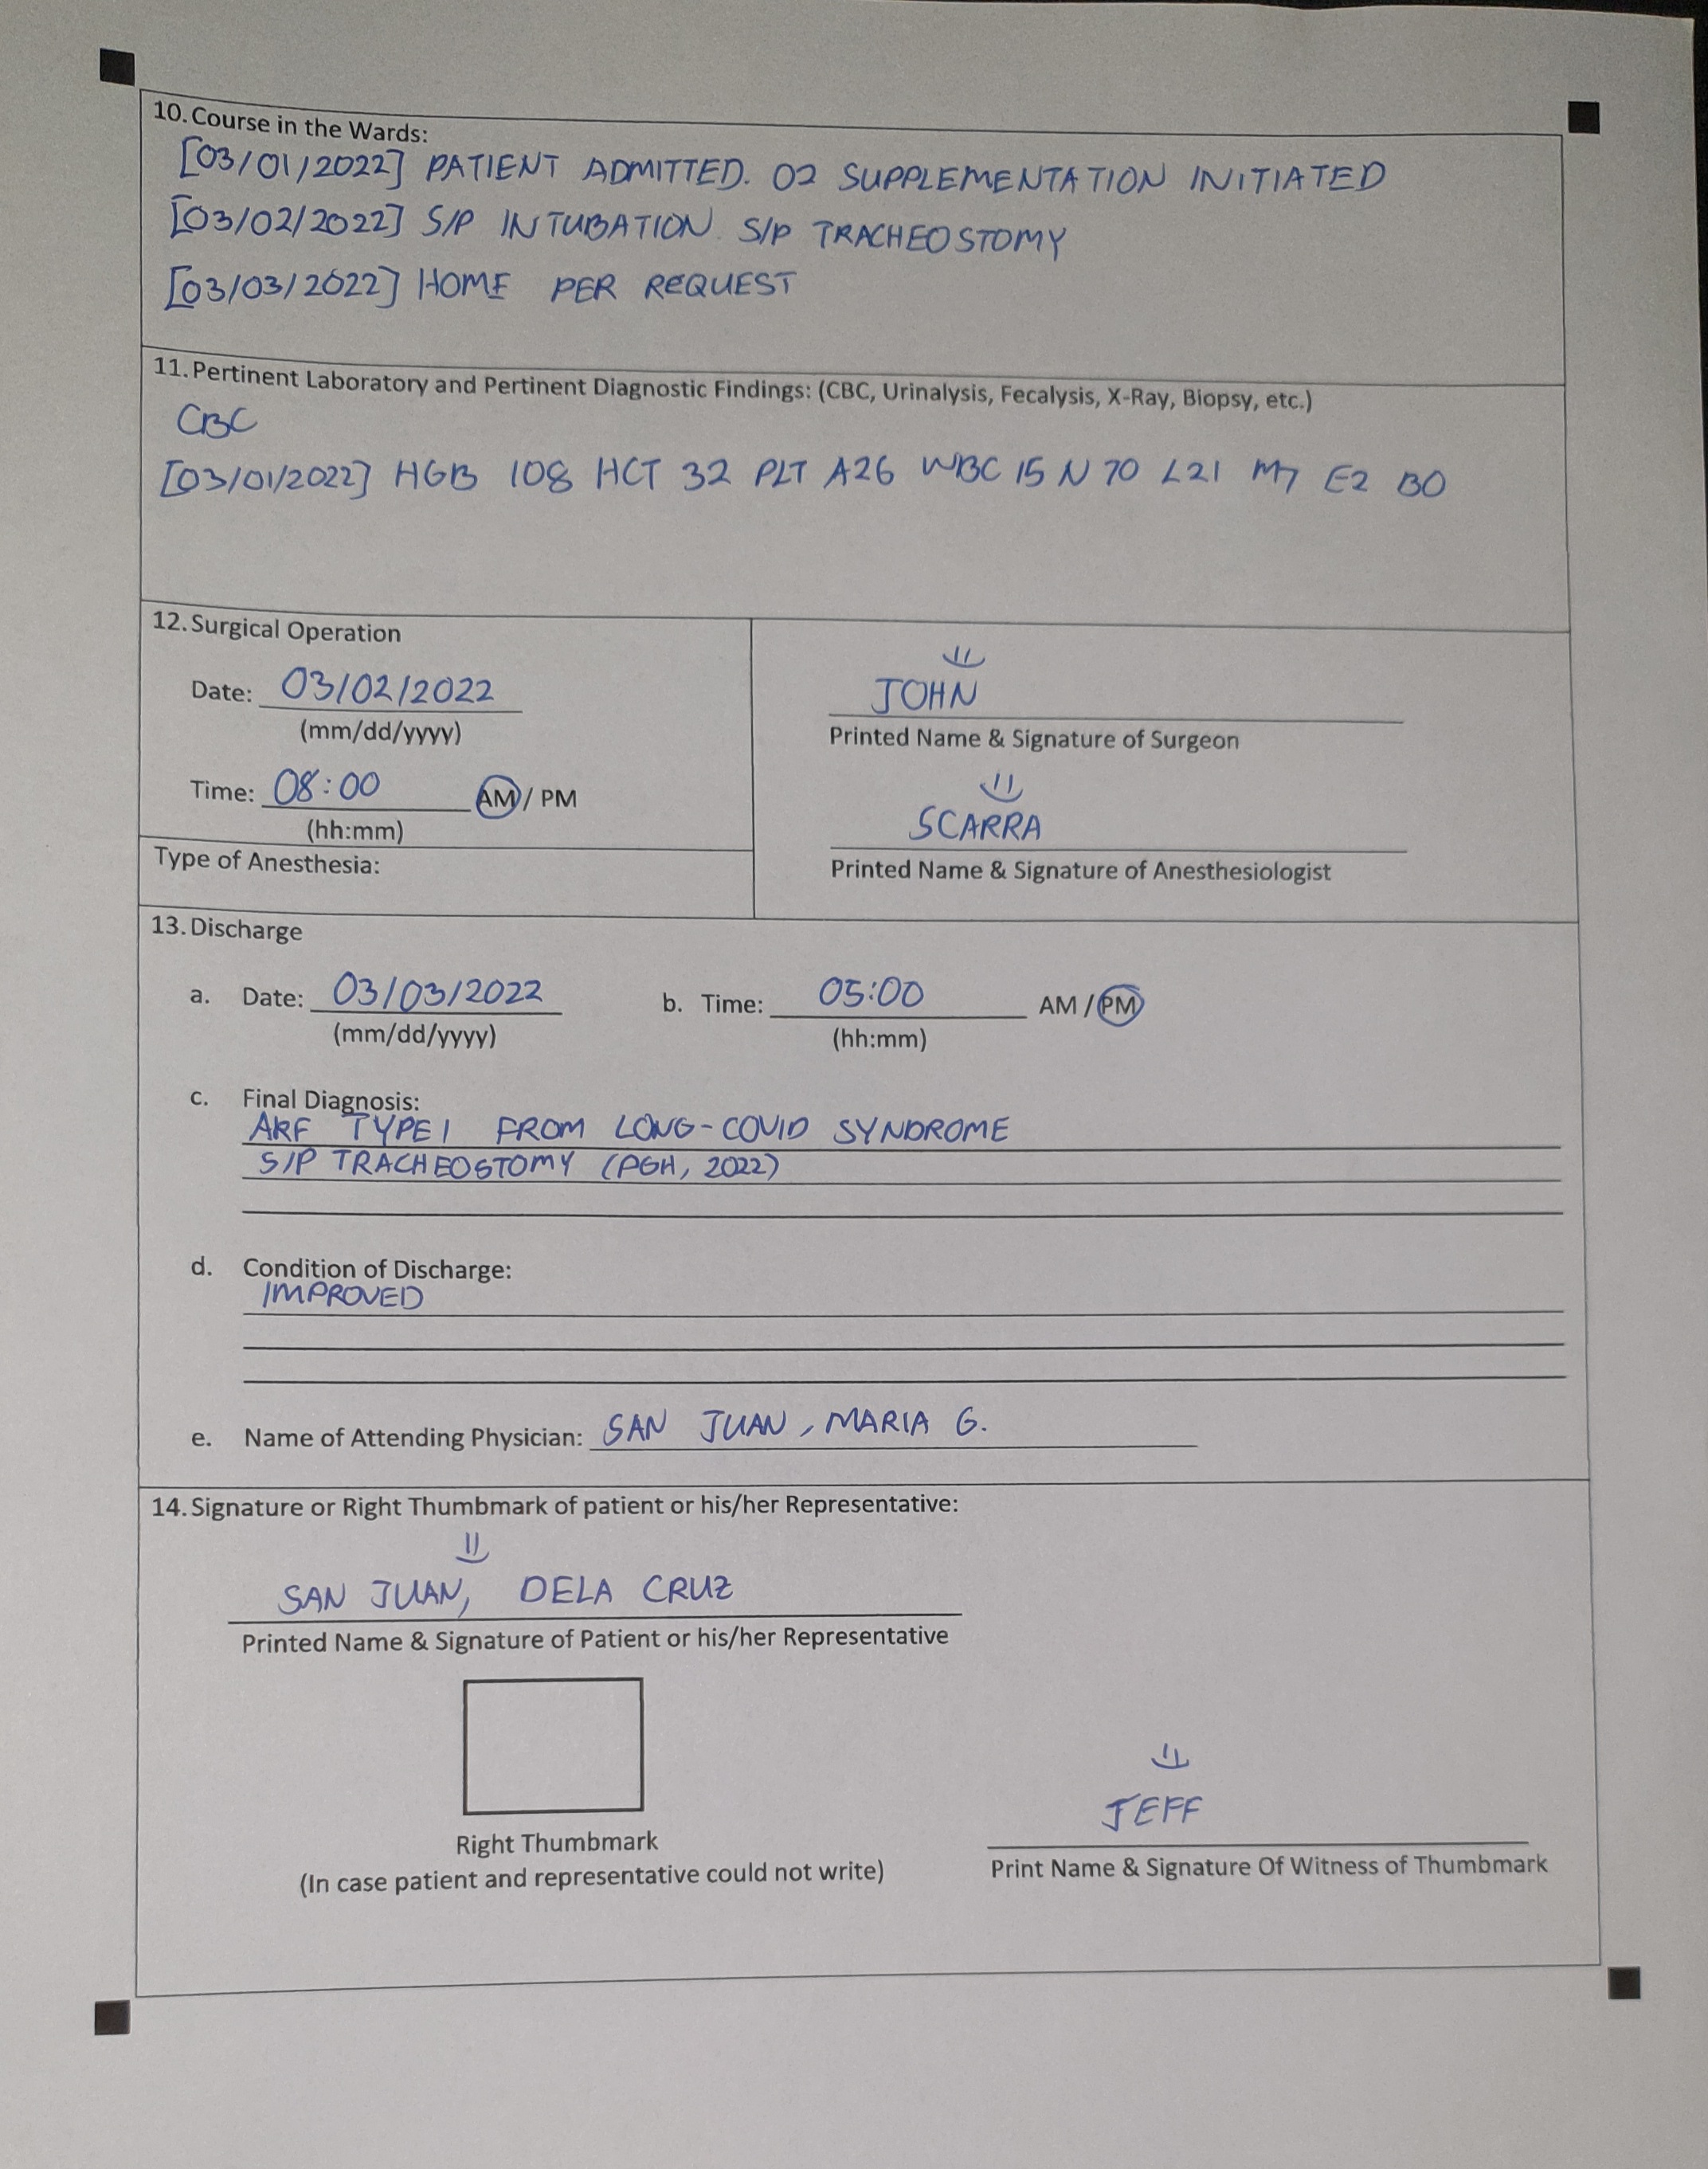 10. Course in the Wards:
[03/01/2022] PATIENT ADMITTED. O2 SUPPLEMENTATION INITIATED
[03/02/2022] S/P INTUBATION. S/P TRACHEOSTOMY
[03/03/2022] HOME PER REQUEST
11. Pertinent Laboratory and Pertinent Diagnostic Findings: (CBC, Urinalysis, Fecalysis, X-Ray, Biopsy, etc.)
CBC
[03/01/2022] HGB 108 HCT 32 PLT A26 WBC 15 N 70 L21 M7 E2 B0
12. Surgical Operation
Date: 03/02/2022
(mm/dd/yyyy)
Time: 08:00 AM / PM
(hh:mm)
Type of Anesthesia:
JOHN
Printed Name & Signature of Surgeon
SCARRA
Printed Name & Signature of Anesthesiologist
13. Discharge
a. Date: 03/03/2022 b. Time: 05:00 AM / PM
(mm/dd/yyyy) (hh:mm)
c. Final Diagnosis:
ARF TYPE 1 FROM LONG-COVID SYNDROME
S/P TRACHEOSTOMY (PGH, 2022)
d. Condition of Discharge:
IMPROVED
e. Name of Attending Physician: SAN JUAN, MARIA G.
14. Signature or Right Thumbmark of patient or his/her Representative:
SAN JUAN, DELA CRUZ
Printed Name & Signature of Patient or his/her Representative
Right Thumbmark
(In case patient and representative could not write)
JEFF
Print Name & Signature Of Witness of Thumbmark